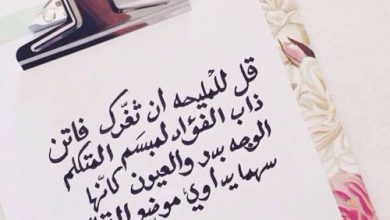 قل للمليحه ان ثغرك فاتن
ذاب الفؤاد لمبسم المتكلم
الوجه بدر والعيون كأنها
سهما يداوي موضع